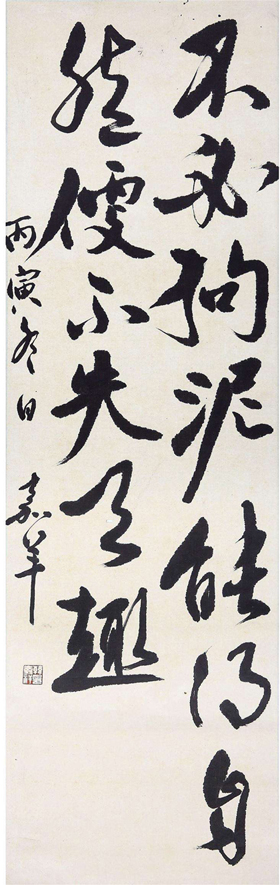 不必拘泥能得自
然便不失天趣
丙寅冬日 嘉羊